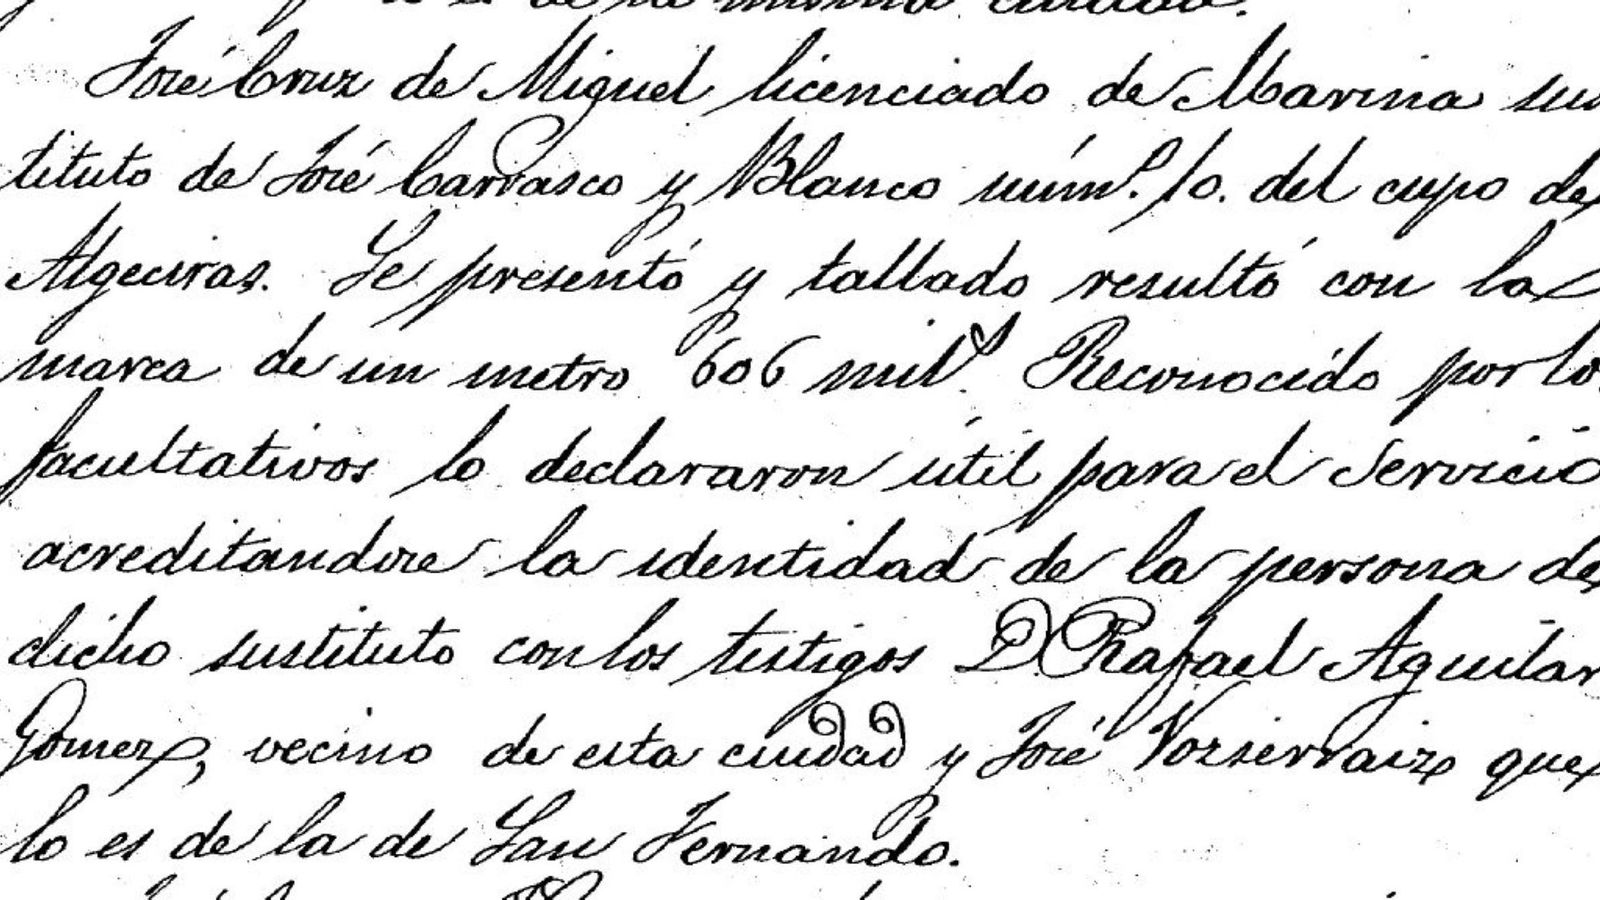 lo es de la misma ciudad.
José Cruz de Miguel licenciado de Marina sus
tituto de José Carrasco y Blanco núm.º 10. del cupo de
Algeciras. Se presentó y tallado resultó con la
marca de un metro 606 mil.s Reconocido por los
facultativos lo declararon útil para el Servicio
acreditandose la identidad de la persona de
dicho sustituto con los testigos D. Rafael Aguilar
Gomez, vecino de esta ciudad y José que
lo es de la de San Fernando.